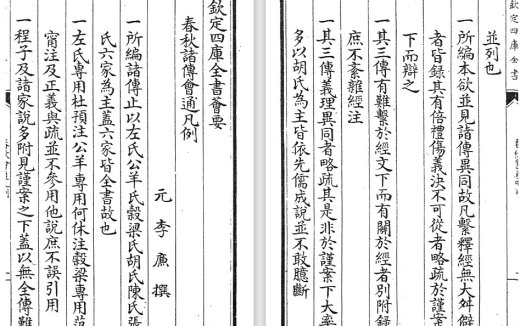 欽定四庫全書薈要
春秋諸傳會通凡例
元 李廉 撰
一所編諸傳止以左氏公羊氏穀梁氏胡氏陳氏張
氏六家為主蓋六家皆全書故也
一左氏專用杜預注公羊專用何休注穀梁專用范
甯注及正義與疏並不參用他說庶不誤引用
一程子及諸家說多附見謹案之下蓋以無全傳難
欽定四庫全書
並列也
一所編本欲並見諸傳異同故凡繫釋經無大舛僻
者皆錄其有倍禮傷義決不可從者略疏於謹案
下而辯之
一其三傳有難繫於經文下而有關於經者別附錄
庶不紊雜經注
一其三傳義理異同者略疏其是非於謹案下大率
多以胡氏為主皆依先儒成說並不敢臆斷